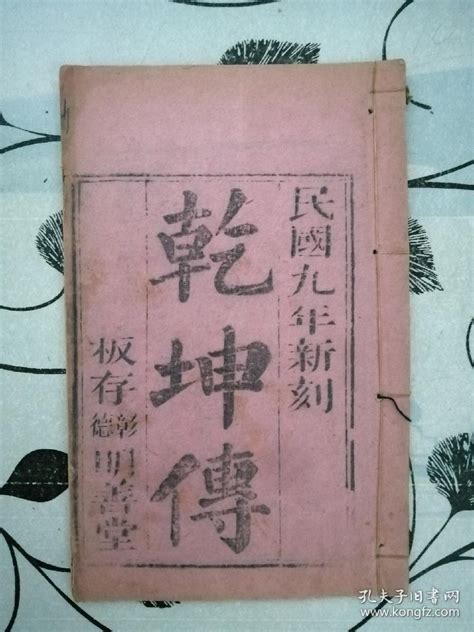 民國九年新刻
乾坤傳
板存彰德明善堂
孔夫子旧书网
www.kongfz.com